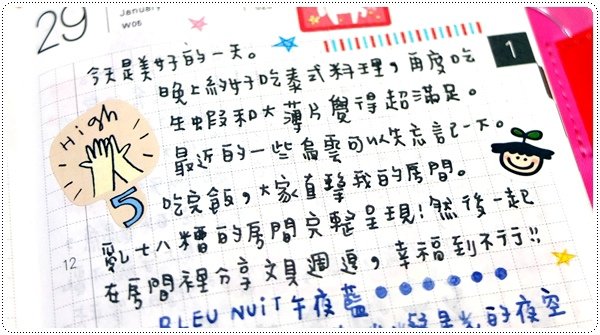 29
January
W05
1
今天是美好的一天。
晚上約好吃泰式料理，再度吃
生蝦和大薄片覺得超滿足。
High
5
最近的一些烏雲可以先忘記一下。
吃完飯，大家直擊我的房間。
12
亂七八糟的房間完整呈現！然後一起
在房間裡分享文具週邊，幸福到不行!!
BLEU NUIT 午夜藍
的夜空